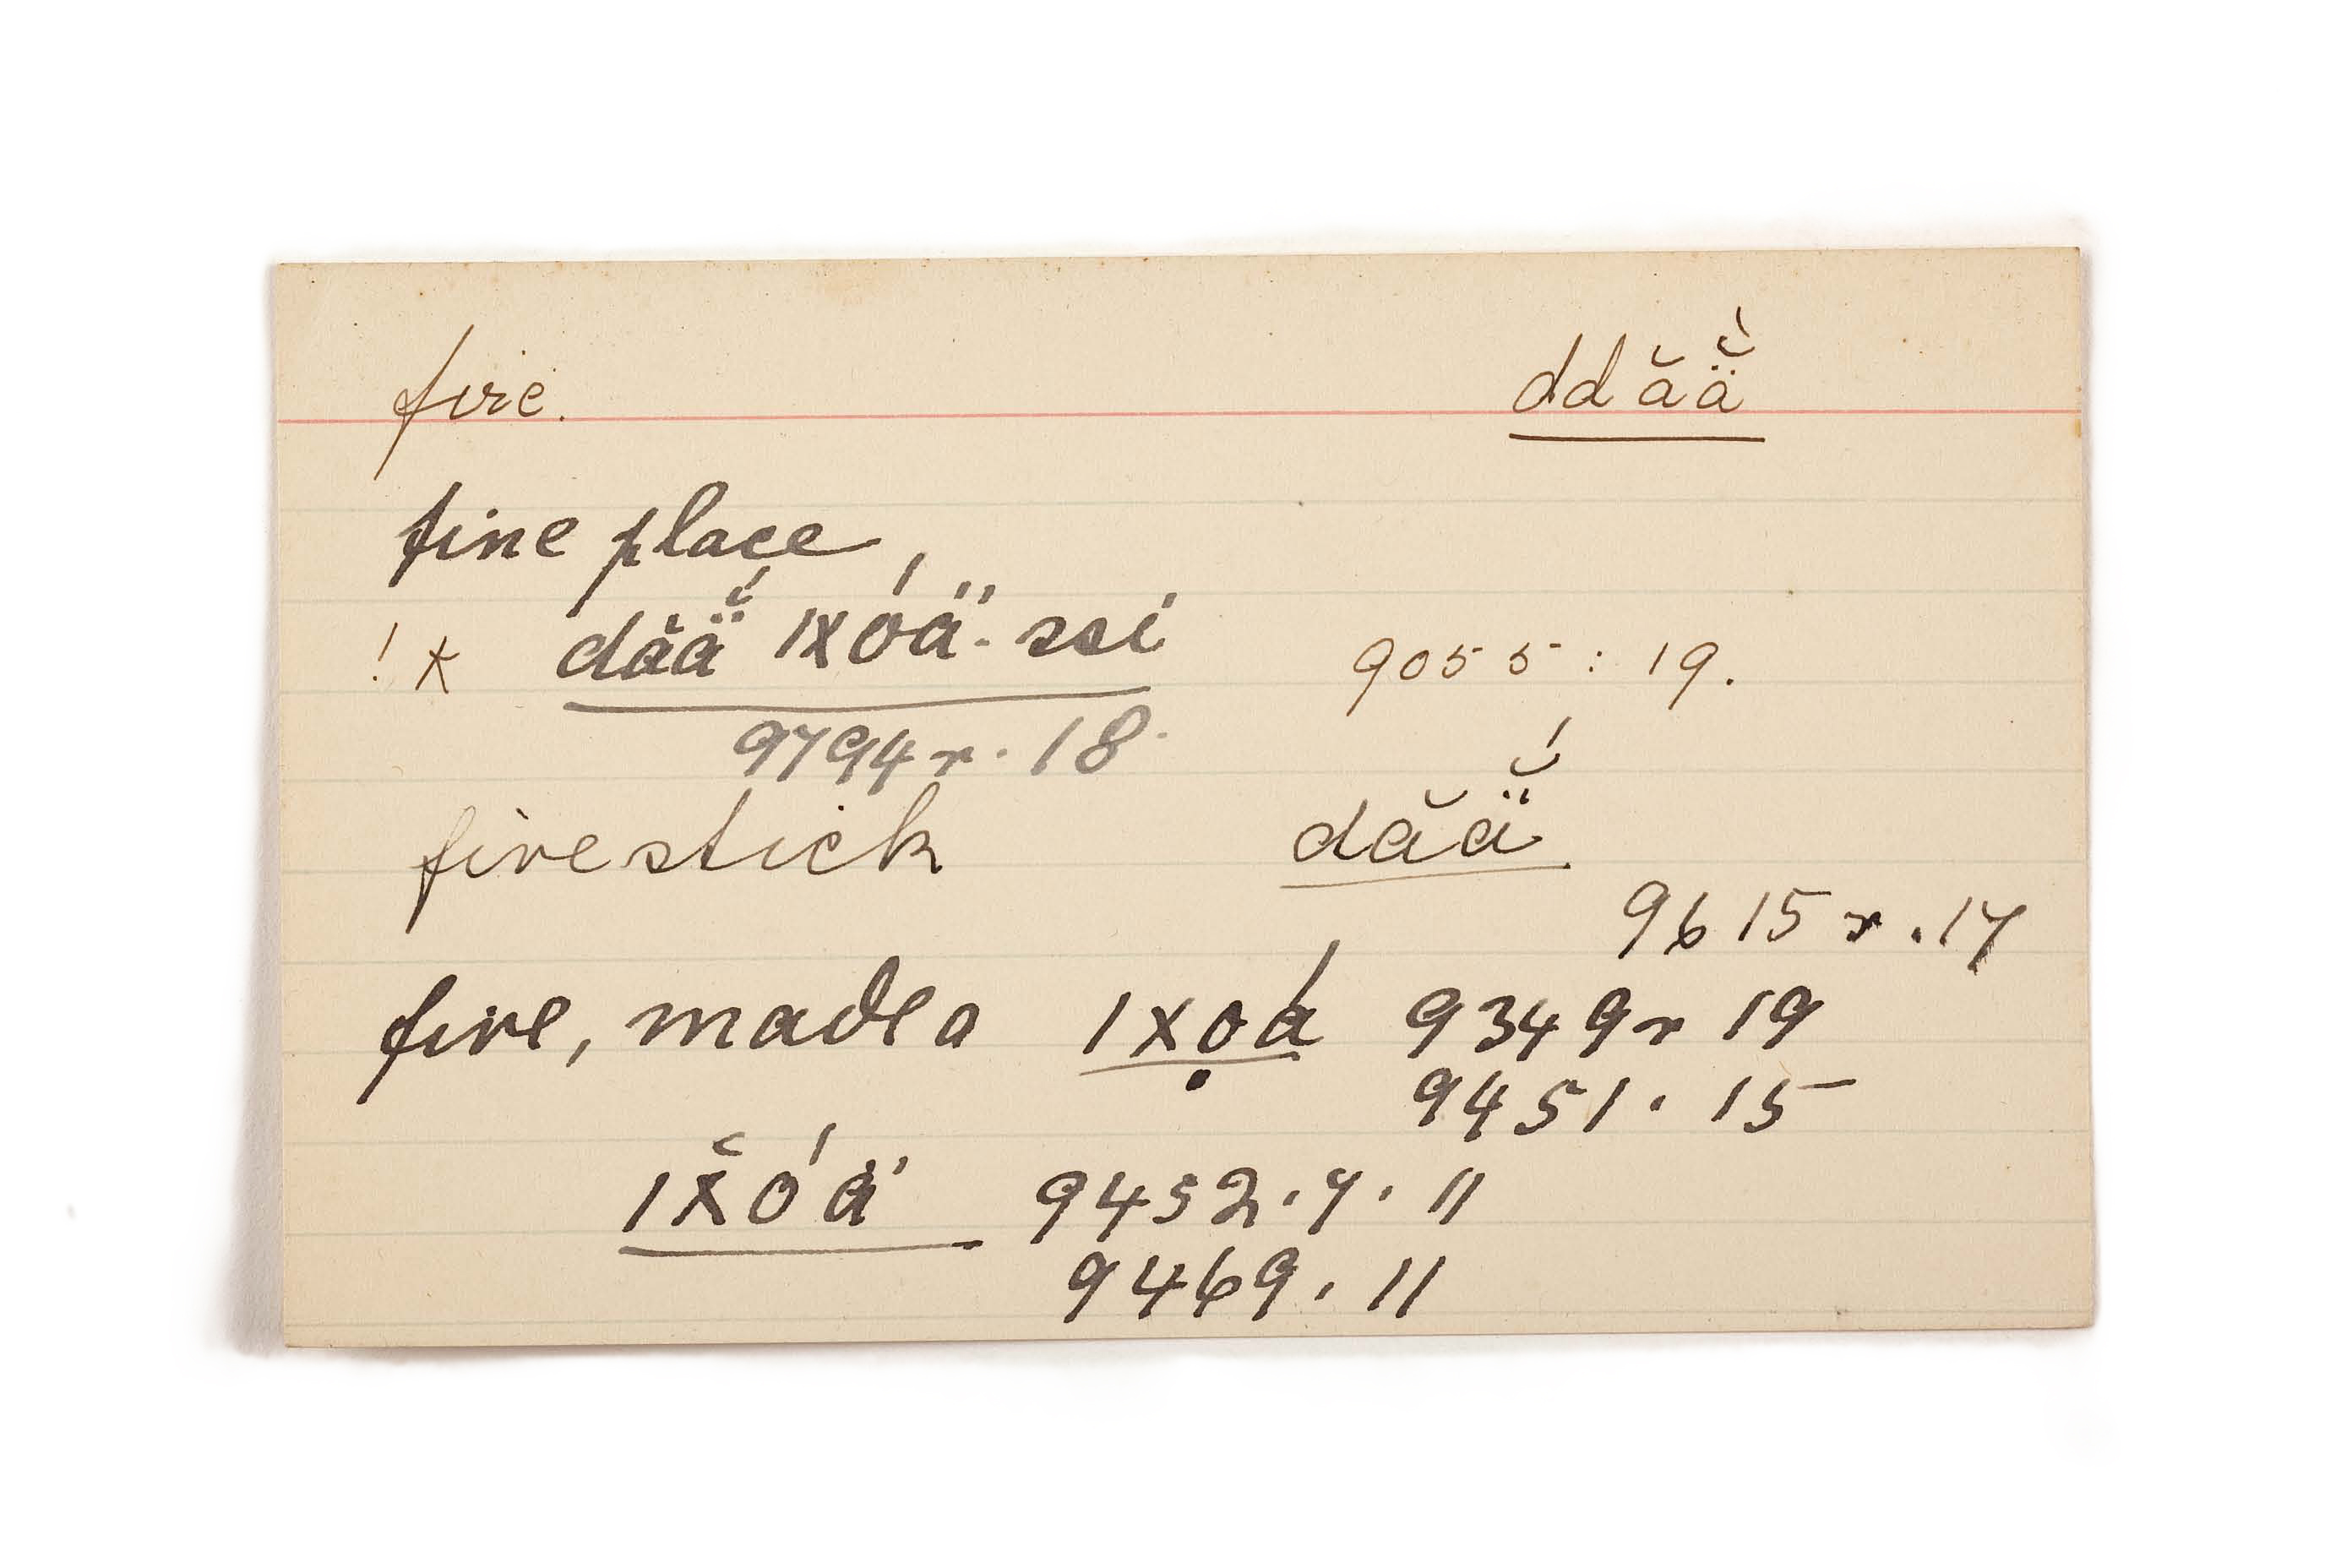 fire. ddăä̆̀
fire place,
! * dăä̆́ |xóä-ssi 9055:19.
9794r.18.
firestick dăä̆́
9615r.17
fire, made a |xo̤á 9349r 19
9451.15
|x̆óä 9452.7.11
9469.11